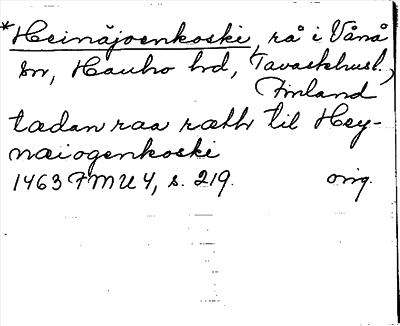 *Heinäjoenkoski, rå i Vånå
sn, Hauho hd, Tavastehusl.,
Finland
tædan raa ræth til Hey-
næiogenkoski
1463 FMU 4, s. 219. orig.